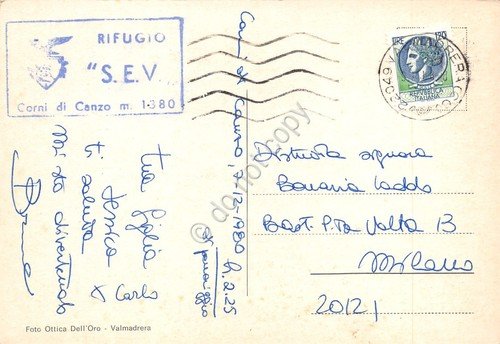 RIFUGIO
"S.E.V.
Corni di Canzo m. 1380
Corni di Canzo, 7.12.1980 h. 2.25
di pomeriggio
tua figlia
Jessica
ti saluta
x Carlo
Mi sto divertendo
LIRE 120
REPUBBLICA
ITALIANA
22049 VALMADRERA (CO)
Distinta signora
Bast. P.ta Volta 13
Milano
20121
Foto Ottica Dell'Oro - Valmadrera
do not copy